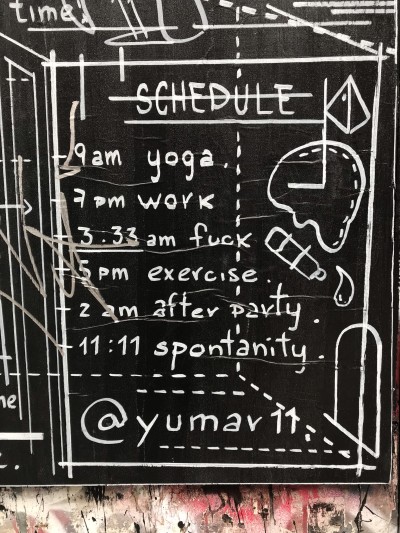 time
SCHEDULE
9am yoga.
7pm work
3.33am fuck
5pm exercise.
2am after party.
11:11 spontanity.
@yumar11